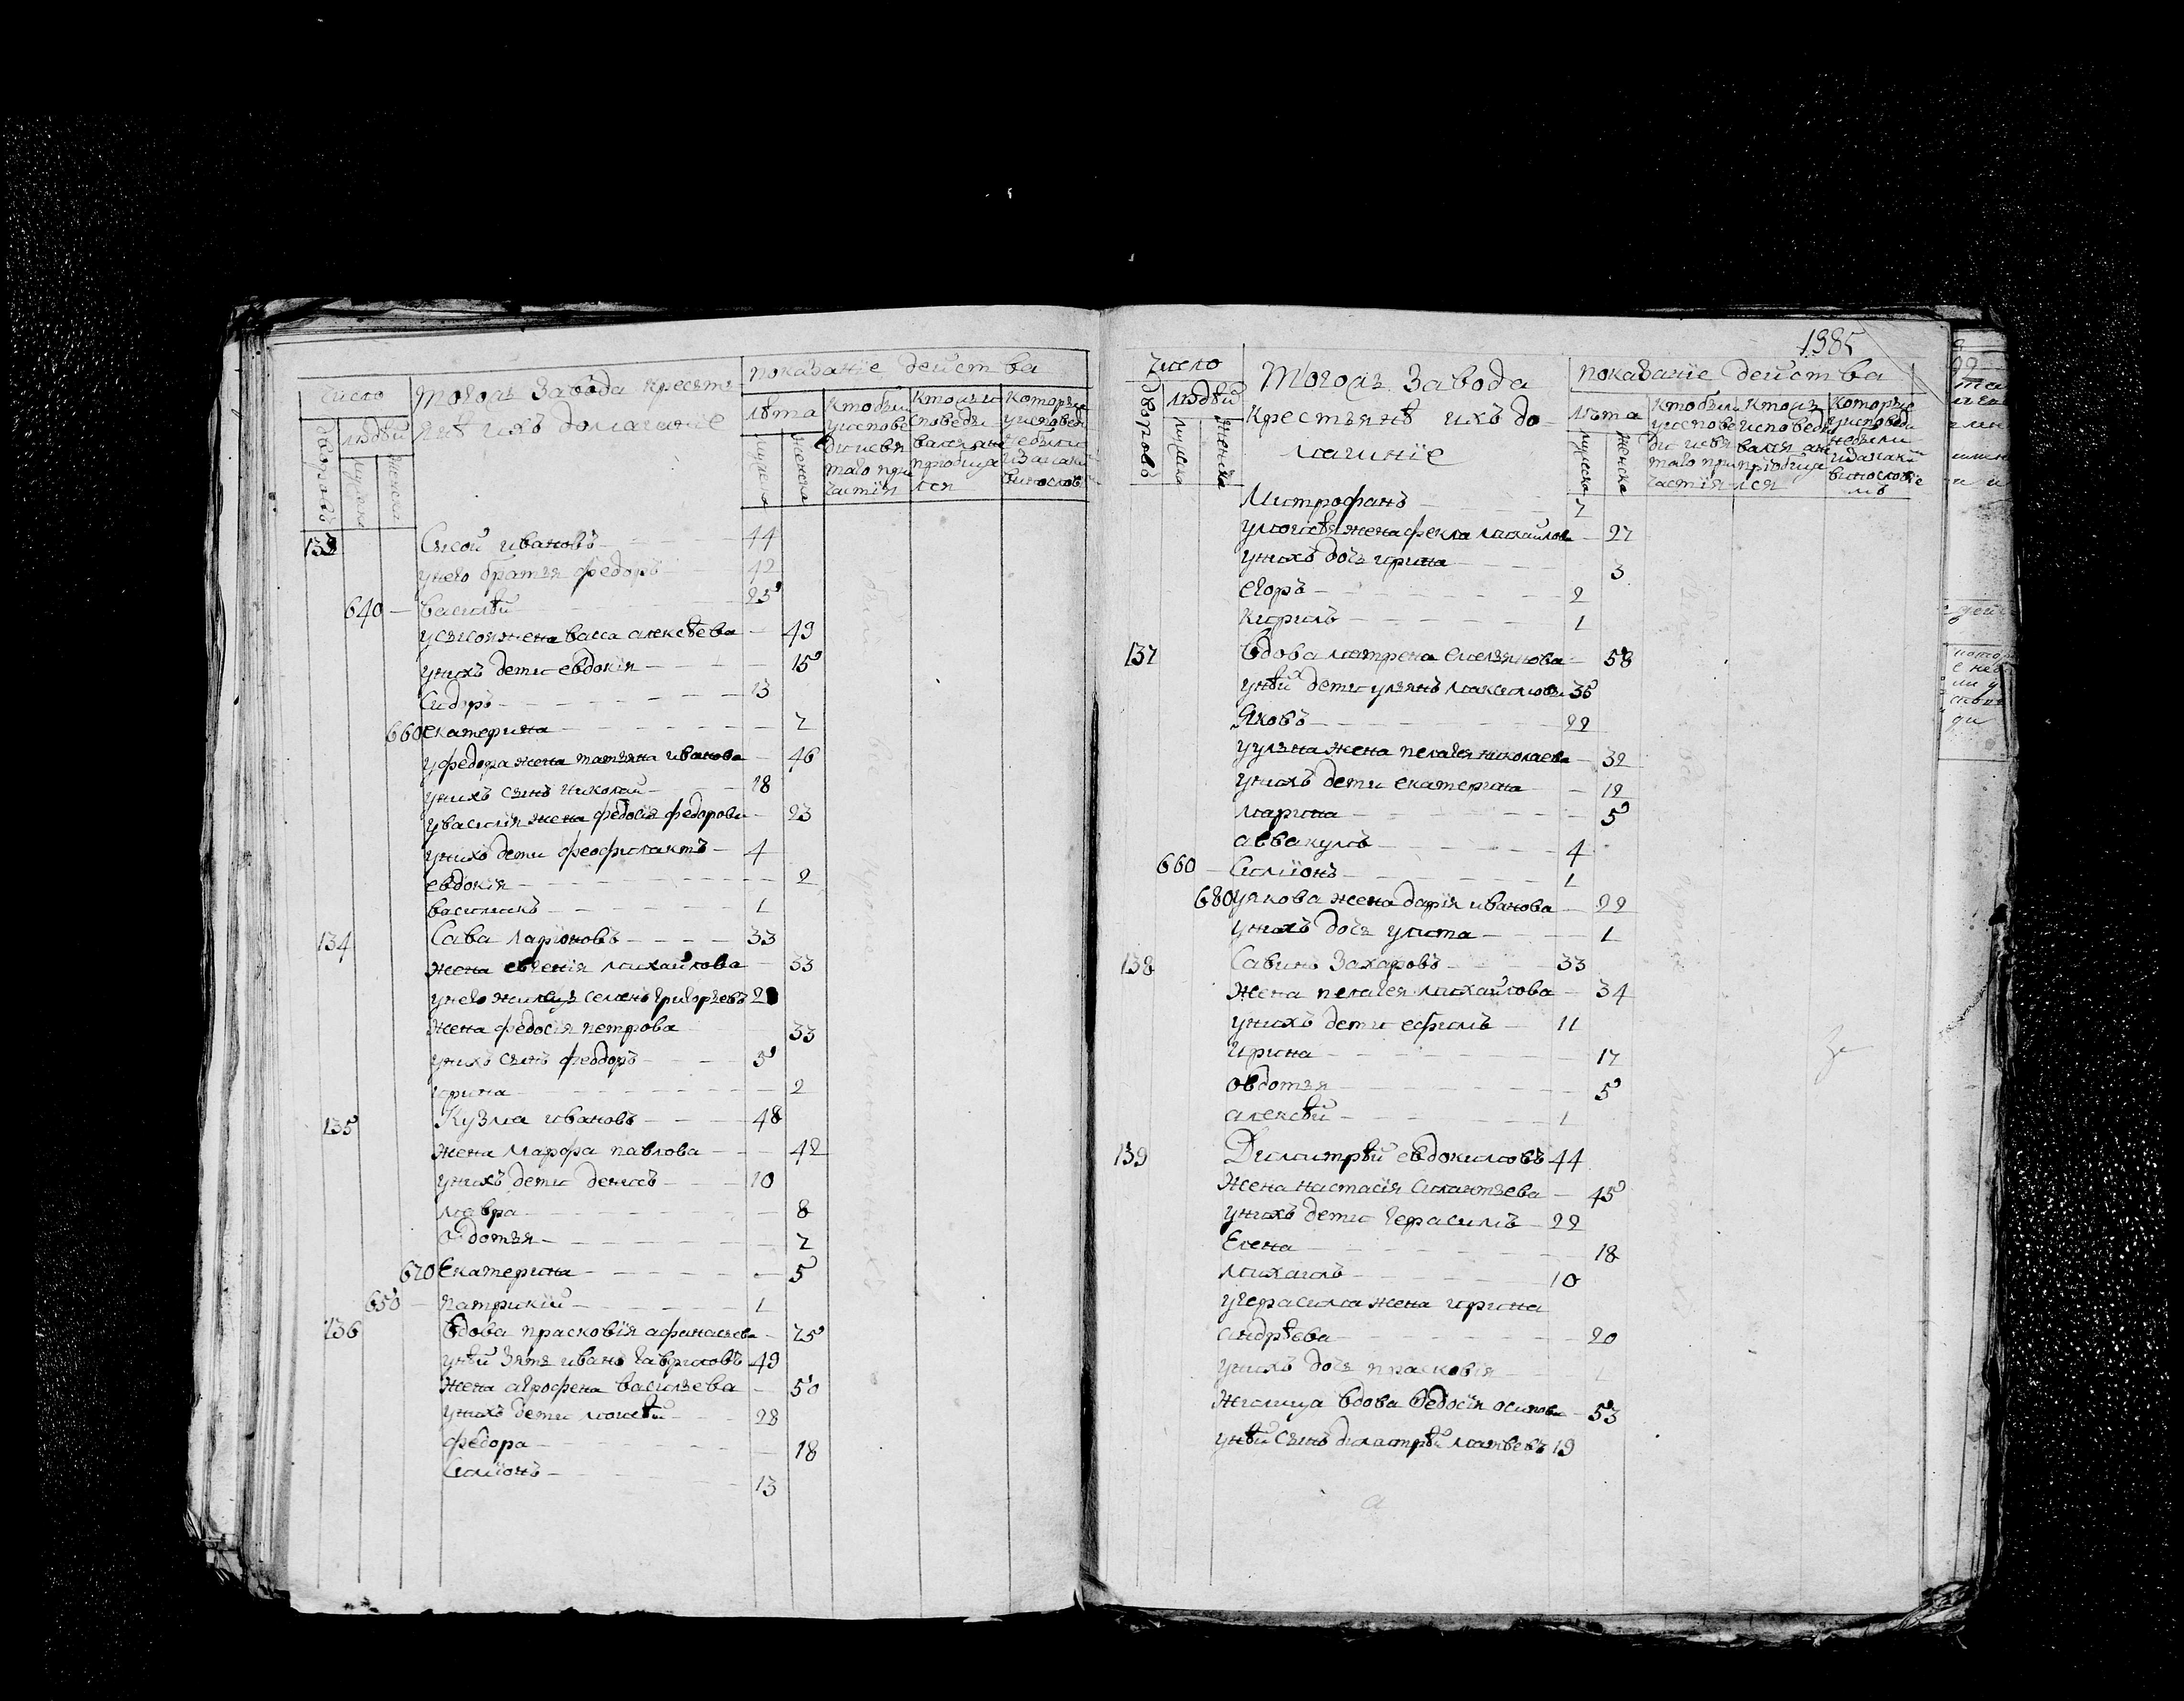 число
тогожъ завода кресть
янѣ ихъ домашние
показание действа
дворовъ
людѣй
мужска
женска
лѣта
мужска
женска
Ктобыли
уиспове
ди исвя
таго при
частия
Ктоже
споведы
вался ане
приобща
лся
Которые
уисповеди
небыли
изакаки
133 Сысой ивановъ 44
унего братья федоръ 42
640 василѣй 25
усысоя жена васса алексѣева 49
унихъ дети евдокия 15
Сидоръ 13
660 екатерина 7
уфедора жена татьяна иванова 46
унихъ сынъ николай 18
увасилия жена федосья федорова 23
унихъ дети феофилактъ 4
евдокия 2
василискъ 1
134 Сава ларионовъ 33
жена евгения михайлова 33
унего жилецъ семенъ григорьевъ
жена федосия петрова 33
унихъ сынъ феодоръ 5
ирина 2
135 Кузма ивановъ 48
жена марфа павлова 42
унихъ дети денисъ 10
мавра 8
овдотья 7
670 Екатерина 5
650 патрикий 1
136 Вдова прасковия афанасьева 75
унѣй зять иванъ гавриловъ 49
жена агрофена васильева 50
унихъ дети моисѣй 28
федора 18
Симионъ 13
1985
число
тогожъ завода
крестьянѣ ихъ до
машние
показание действа
дворовъ
людѣй
мужска
женска
лѣта
мужска
женска
Ктобыли
уиспове
ди исвя
таго при
частия
Ктоже
исповеды
вался ане
приобща
лся
Которые
уисповеди
небыли
изакаки
Митрофанъ 7
умоисѣя жена фекла михайлова 27
унихъ дочь ирина 3
егоръ 2
кирилъ 1
137 Вдова матрена емельянова 58
унѣй дети ульянъ максимовъ 35
Яковъ 22
уульяна жена пелагея николаева 32
унихъ дети екатерина 12
марина 5
аввакумъ 4
660 Симионъ 1
680 уякова жена дария иванова 22
унихъ дочь улита 1
138 Савинъ захаровъ 33
Жена пелагея михайлова 34
унихъ дети ефимъ 11
ирина 17
овдотья 5
алексѣй 1
139 Димитрѣй евдокимовъ 44
Жена настасия силантьева 45
унихъ дети герасимъ 22
Елена 18
михаилъ 10
угерасима жена ирина
андрѣева 20
унихъ дочь прасковия 1
Жилица вдова федосия осипова 53
унѣй сынъ димитрѣй матвеевъ 19